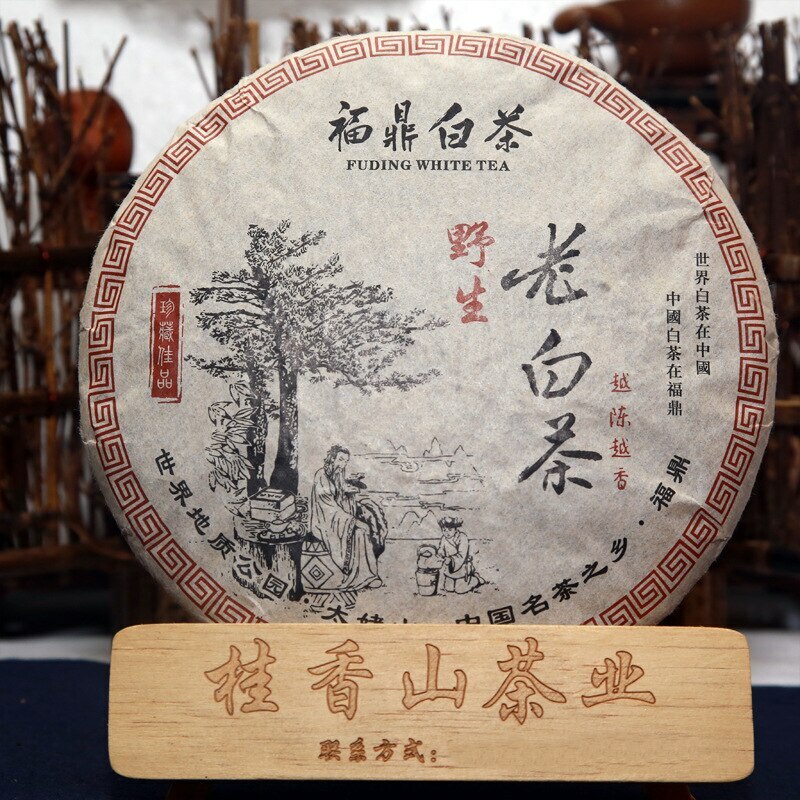 福鼎白茶
FUDING WHITE TEA
野生
老白茶
越陈越香
世界白茶在中國
中國白茶在福鼎
珍藏佳品
世界地质公园·太姥山 中国名茶之乡·福鼎
桂香山茶业
联系方式: